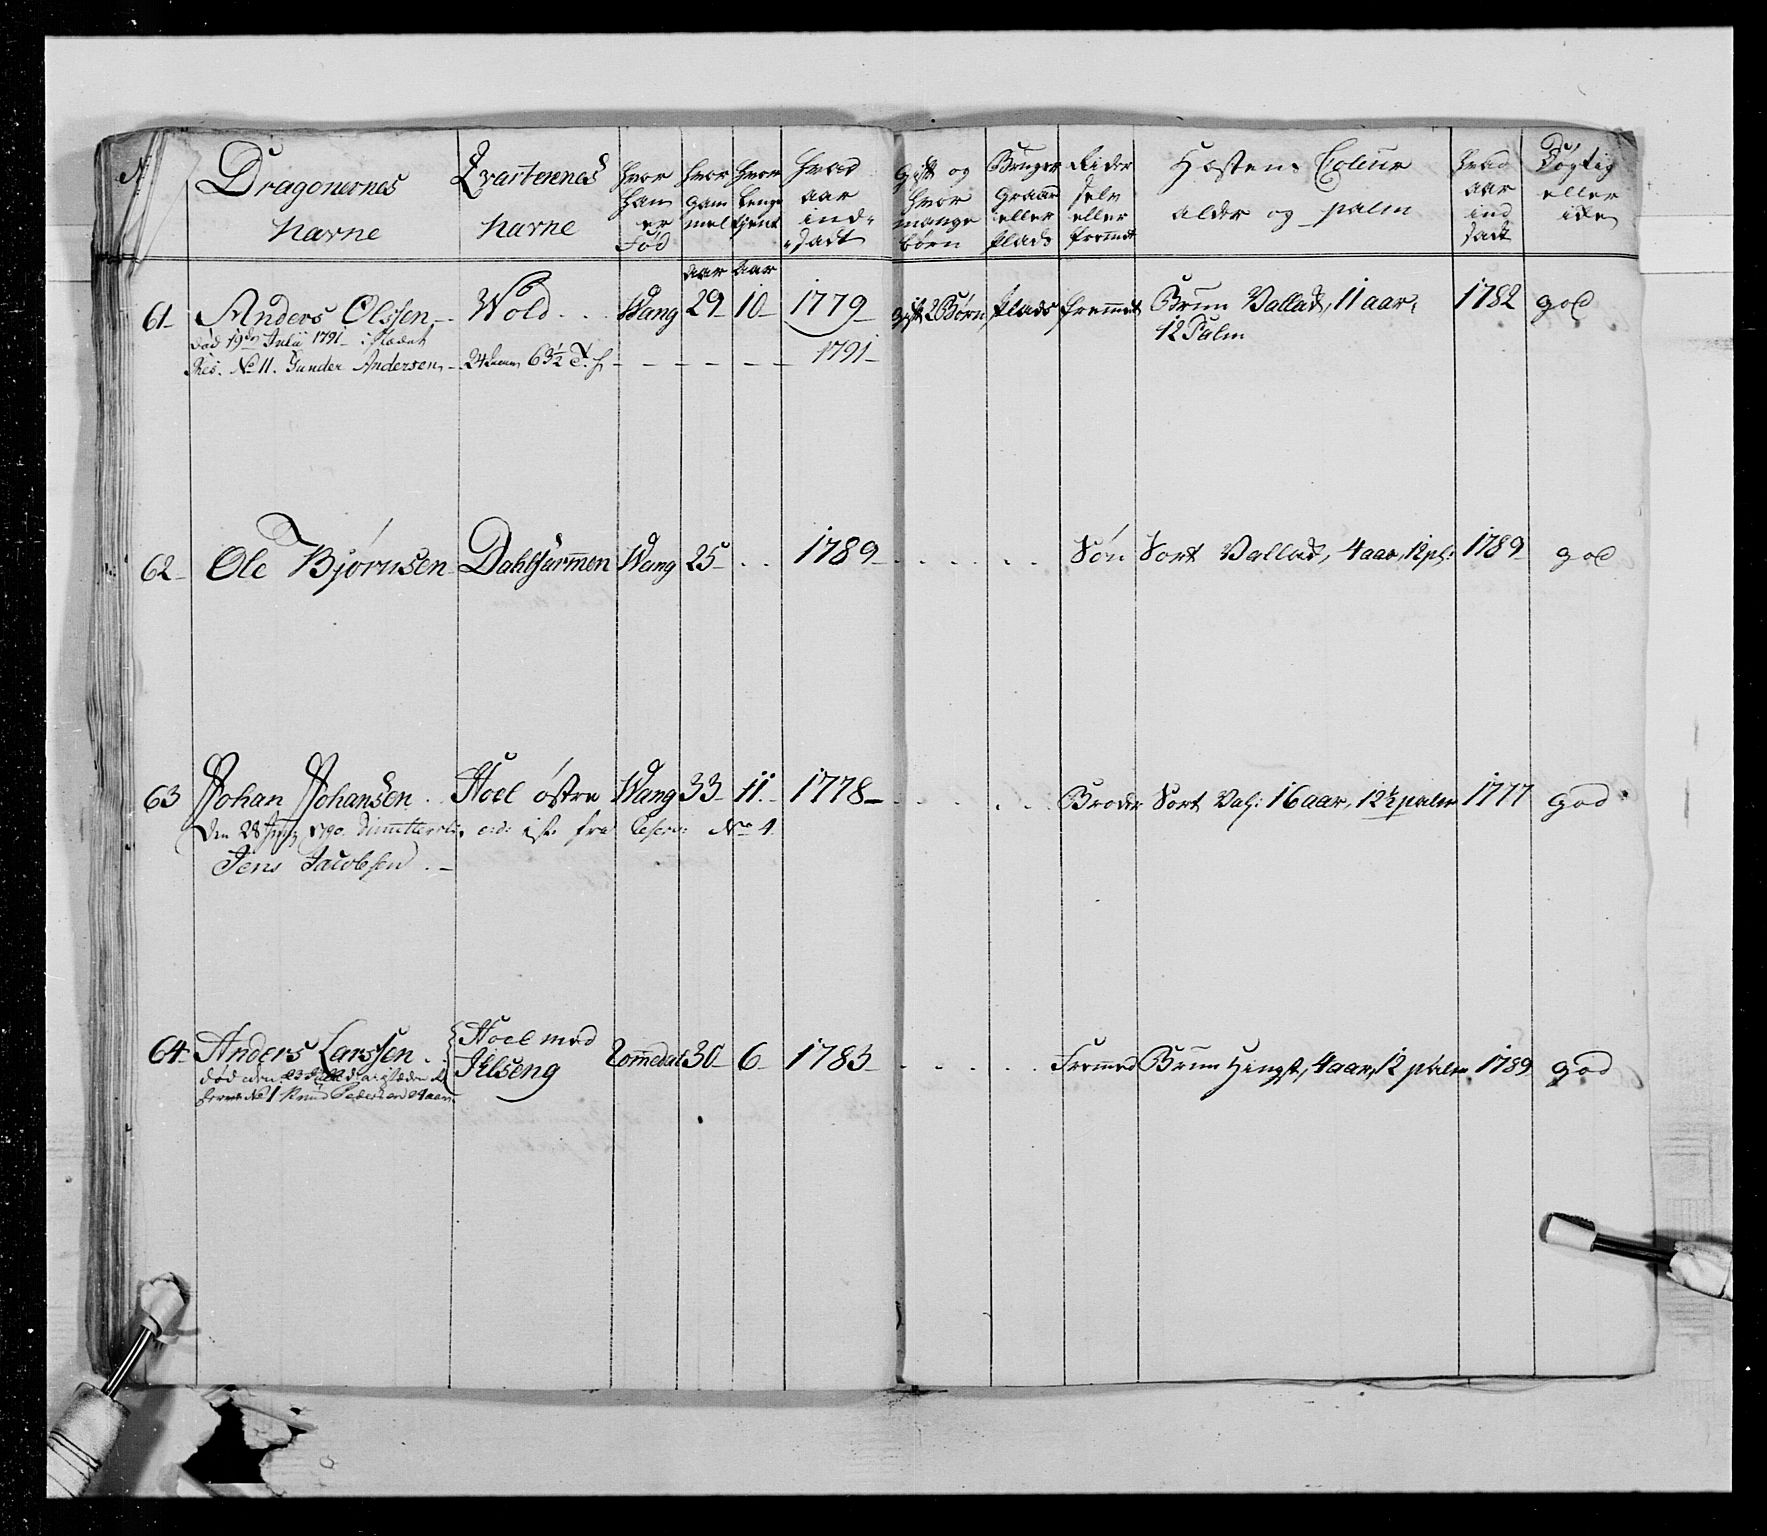 N
Dragonernes Navne
Qvarterenes Navne
hvor han er Fød
hvor gam mel
hvor lenge tjent
hvad aar ind- sadt
gift og hvor mange børn
Bruger Graard eller Plads
Rider selv eller fremmet
Hæstens Coleur alder og palm
hvad aar ind sadt
Døgtig eller ikke
aar aar
61 Anders Olssen Wold Wang 29 10 1779 gift 2 Børn Plads fremmet Brun Vallak, 11 aar, 1782 god
12 Palm
død 19de Julii 1791
Res. No 11. Gunder Andersen 24 6 3½ 1791
62 Ole Bjørnsen Dahlsjarmen Wang 25 1789 Søn Sort Vallak, 4 aar, 12 pl: 1789 god
63 Johan Johansen Hoel østre Wang 33 11 1778 Broder Sort Val: 16 aar, 12½ palm 1777 god
Den 28 1790 fra Reserv: No 4
Jens Jacobsen
64 Anders Larssen Hoel med Romedal 30 6 1783 Fremmed Brun Hingst, 4 aar, 12 palm 1789 god
Ilseng
død den 23
No 1 Knud Pedersen 24 aar